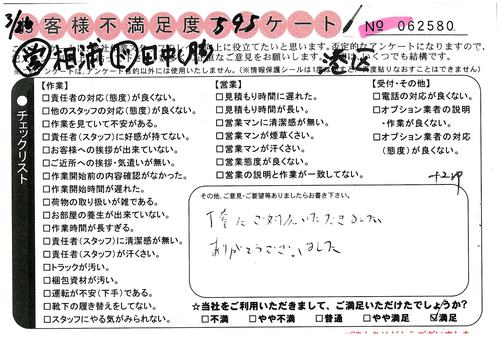 お客様不満足度アンケート
No 062580
役立てたいと思います。否定的なアンケートになりますので、
直なご意見をお願いします。
アンケート目的以外には使用いたしません。(※情報保護シールは1度
チェックリスト
【作業】
□責任者の対応(態度)が良くない。
□他のスタッフの対応(態度)が良くない。
□作業を見ていて不安がある。
□責任者(スタッフ)に好感が持てない。
□お客様への挨拶が出来ていない。
□ご近所への挨拶・気遣いが無い。
□作業開始前の内容確認がなかった。
□作業開始時間が遅れた。
□荷物の取り扱いが雑である。
□お部屋の養生が出来ていない。
□作業時間が長すぎる。
□責任者(スタッフ)に清潔感が無い。
□責任者(スタッフ)が汗くさい。
□トラックが汚い。
□梱包資材が汚い。
□運転が不安(下手)である。
□靴下の履き替えをしてない。
□スタッフにやる気がみられない。
【営業】
□見積もり時間に遅れた。
□見積もり時間が長い。
□営業マンに清潔感が無い。
□営業マンが煙草くさい。
□営業マンが汗くさい。
□営業態度が良くない。
□営業の説明と作業が一致してない。
【受付・その他】
□電話の対応が良くない。
□オプション業者の説明
・作業が良くない。
□オプション業者の対応
(態度)が良くない。
その他、ご意見・ご要望等ありましたらお書き下さい。
丁寧にご対応いただきました
ありがとうございました
☆当社をご利用いただきまして、ご満足いただけたでしょうか?
□不満 □やや不満 □普通 □やや満足 ☑満足